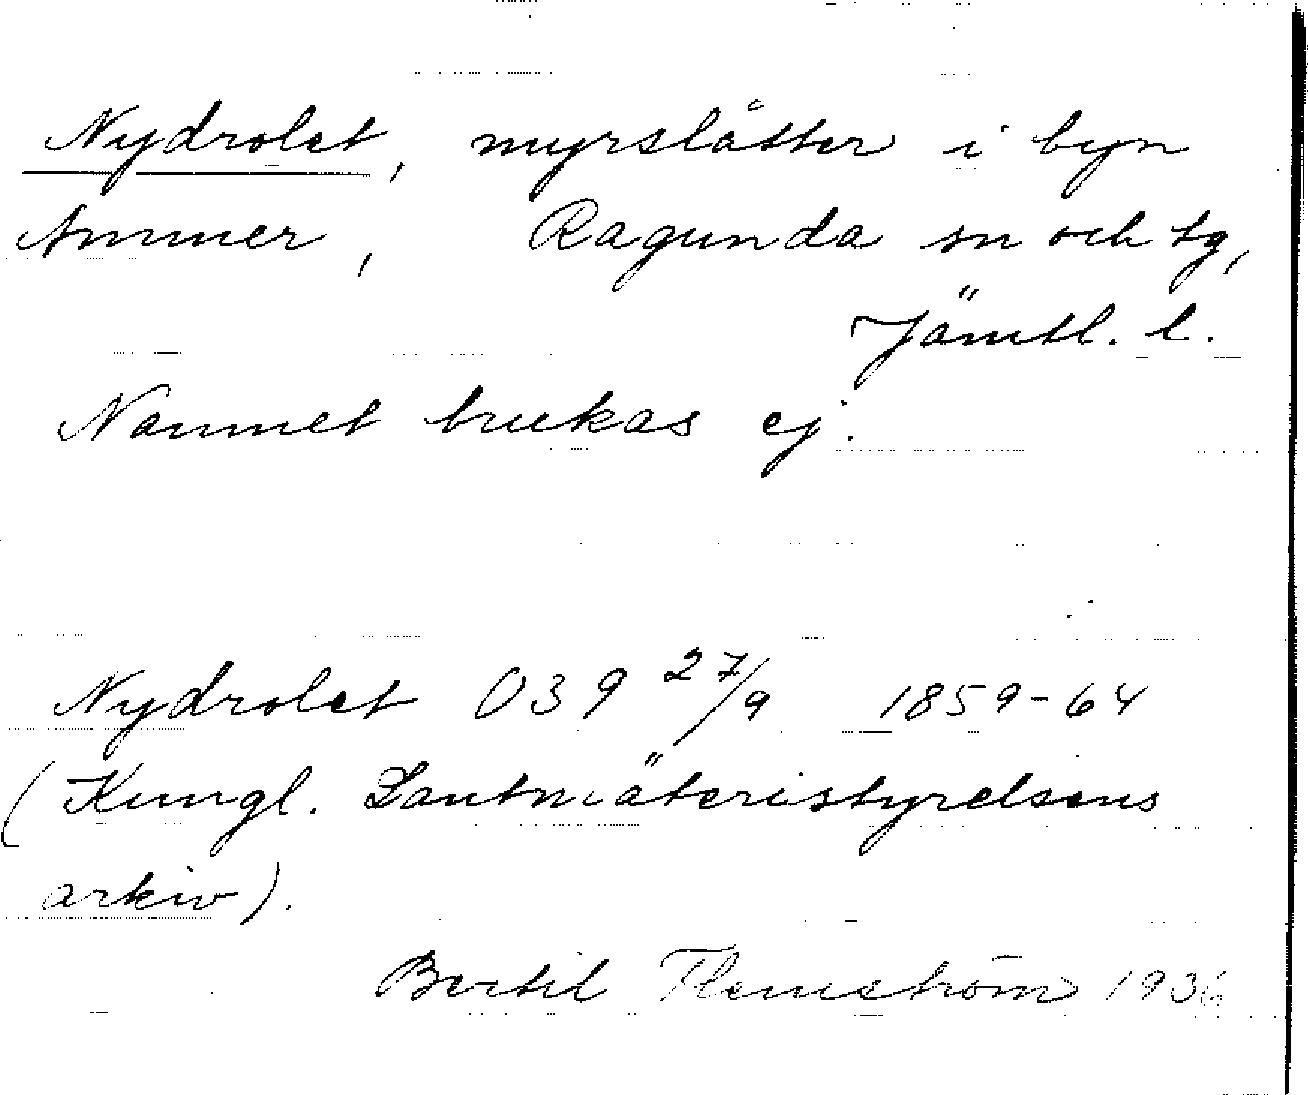 Nydrolet, myrslåtter i byn
Ammer, Ragunda sn och tg,
Jämtl. l.
Namnet brukas ej.
Nydrolet 039 27/9 1859-64
(Kungl. Lantmäteristyrelsens
arkiv).
Bertil Flemström 1936